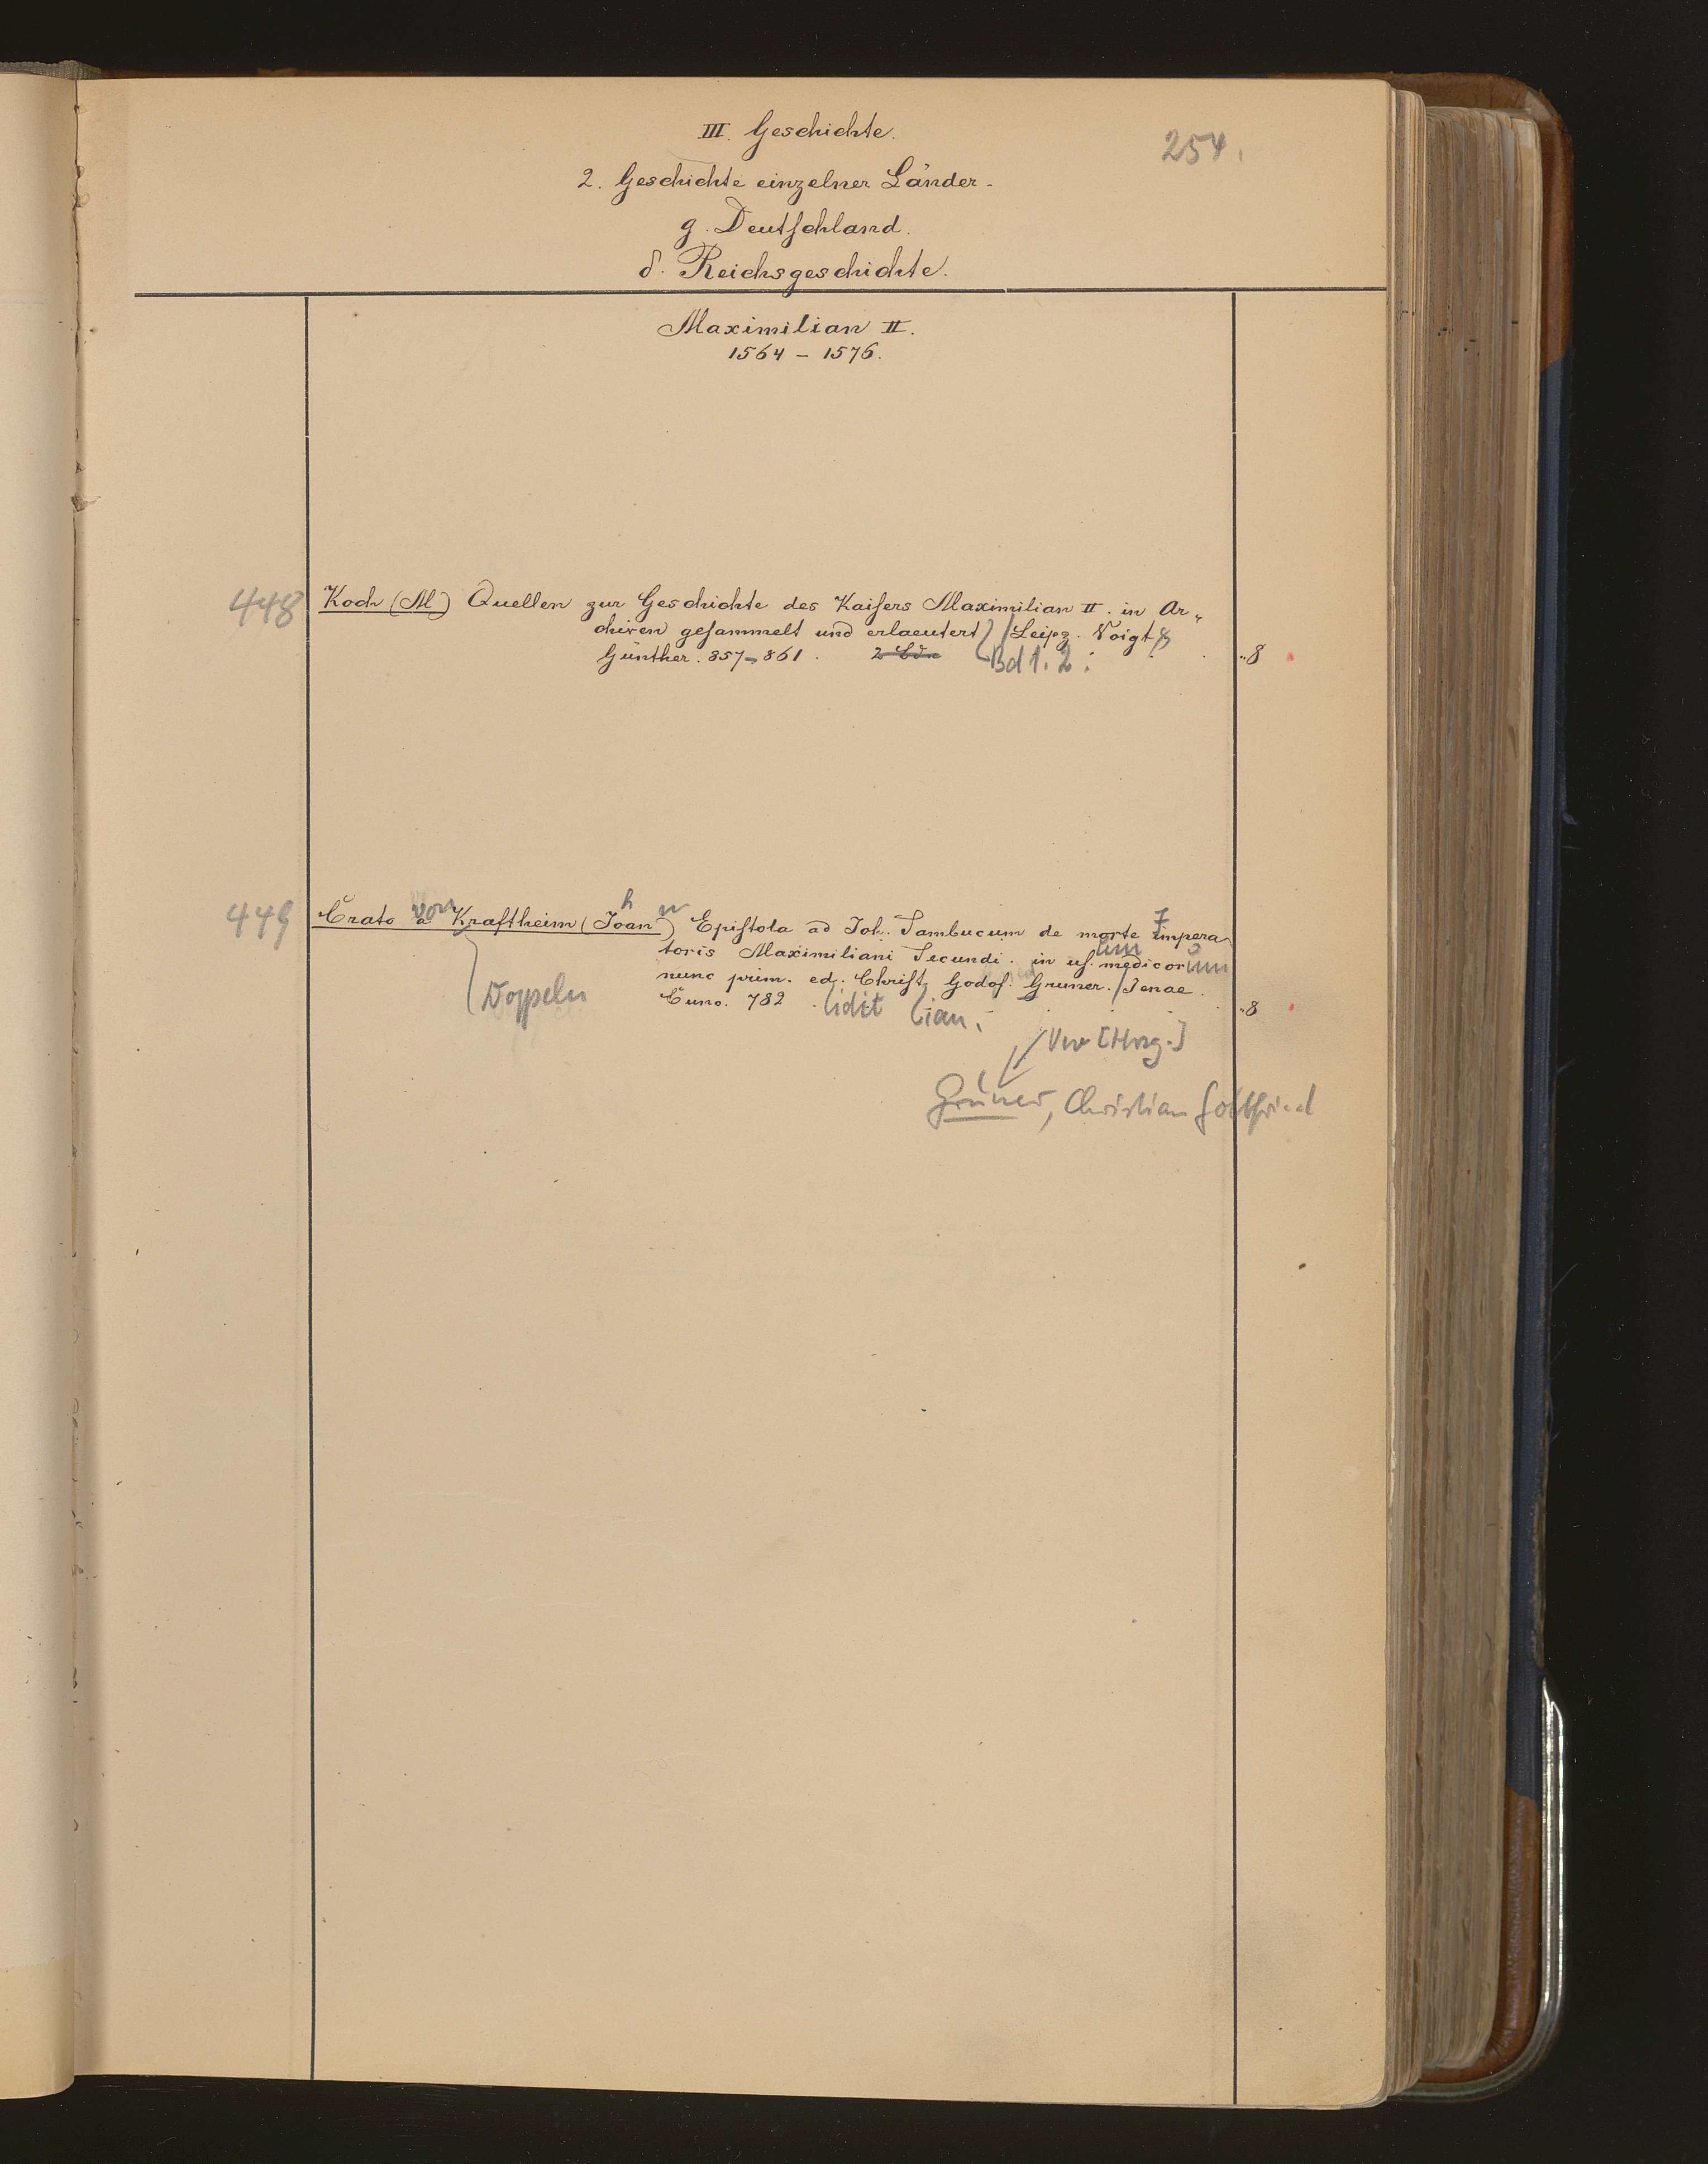 III. Geschichte.
254.
2. Geschichte einzelner Länder.
g. Deutschland.
δ. Reichsgeschichte.
Maximilian II.
1564 – 1576.
448 Koch (M) Quellen zur Geschichte des Kaisers Maximilian II. in Ar-
chiven gesammelt und erlaeutert / Leipz. Voigt &
Günther. 857–861. 2 Bde Bd 1. 2. "8
449 Crato a von Kraftheim (Joan h n) Epistola ad Joh. Sambucum de morte Impera-
toris Maximiliani Secundi. in us. um medicorum
nunc prim. ed. Christ. Godof. Gruner. / Jenae.
Cuno. 782. idit ian. "8
Doppeln
Vw [Hrsg.]
Gruner, Christian Gottfried